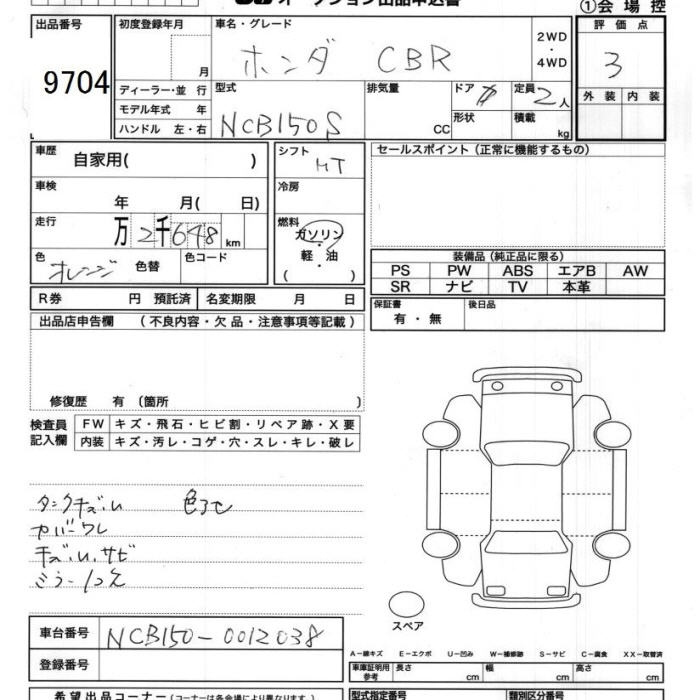 オークション出品申込書
①会場控
出品番号
9704
初度登録年月
月
車名・グレード
ホンダ CBR
2WD
・
4WD
評価点
3
外装 内装
ディーラー・並行
モデル年式 年
ハンドル 左・右
型式
NCB150S
排気量
CC
ドア
形状
定員 2人
積載
kg
車歴
自家用( )
車検
年 月( 日)
走行
万2千648km
色
オレンジ
色替
色コード
シフト
MT
冷房
燃料
ガソリン・
軽・油
( )
セールスポイント(正常に機能するもの)
装備品(純正品に限る)
PS PW ABS エアB AW
SR ナビ TV 本革
保証書
有・無
後日品
R券 円 預託済 名変期限 月 日
出品店申告欄 (不良内容・欠品・注意事項等記載)
修復歴 有(箇所 )
検査員
記入欄
FW キズ・飛石・ヒビ割・リペア跡・X要
内装 キズ・汚レ・コゲ・穴・スレ・キレ・破レ
タンクキズ
カバーワレ
キズ サビ
ミラー
スペア
車台番号 NCB150-0012038
登録番号
A-線キズ E-エクボ U-凹み W-補修跡 S-サビ C-腐食 XX-取替済
車庫証明用
参考
長さ cm 幅 cm 高さ cm
型式指定番号 類別区分番号
希望出品コーナー(コーナーは各会場により